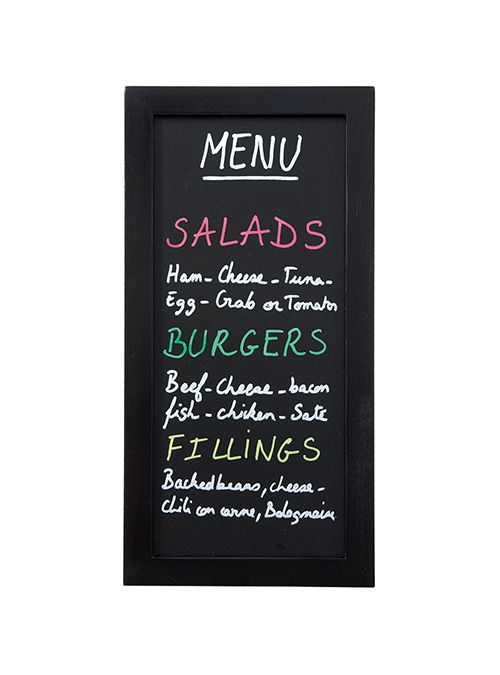 MENU
SALADS
Ham - Cheese - Tuna -
Egg - Grab or Tomaton
BURGERS
Beef - Cheese - bacon
fish - chicken - Sate
FILLINGS
Backed beans, cheese -
chili con carne, Bolognaise